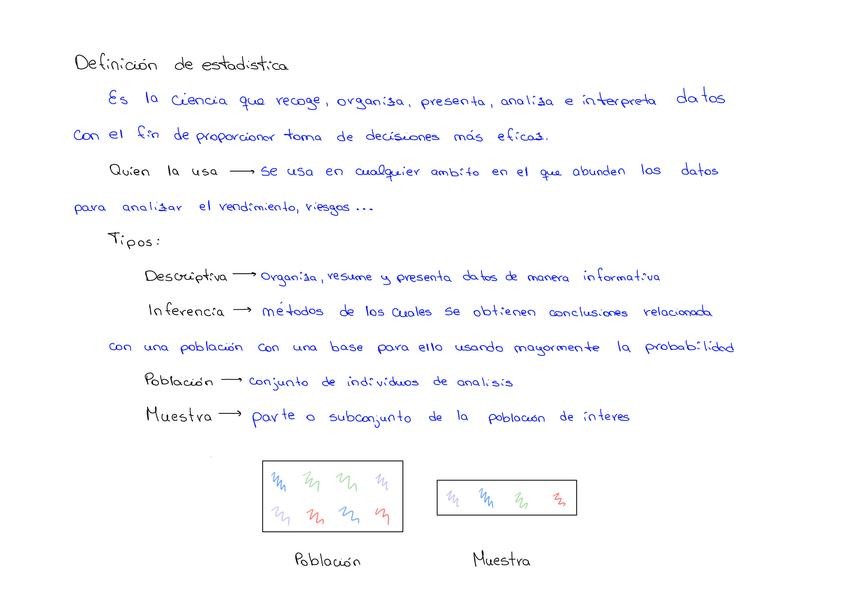 Definición de estadistica
Es la ciencia que recoge, organiza, presenta, analiza e interpreta datos
con el fin de proporcionar toma de decisiones más eficaz.
Quien la usa → se usa en cualquier ambito en el que abunden los datos
para analizar el rendimiento, riesgos ...
Tipos:
Descriptiva → organiza, resume y presenta datos de manera informativa
Inferencia → métodos de los cuales se obtienen conclusiones relacionada
con una población con una base para ello usando mayormente la probabilidad
Población → conjunto de individuos de analisis
Muestra → parte o subconjunto de la población de interes
Población Muestra